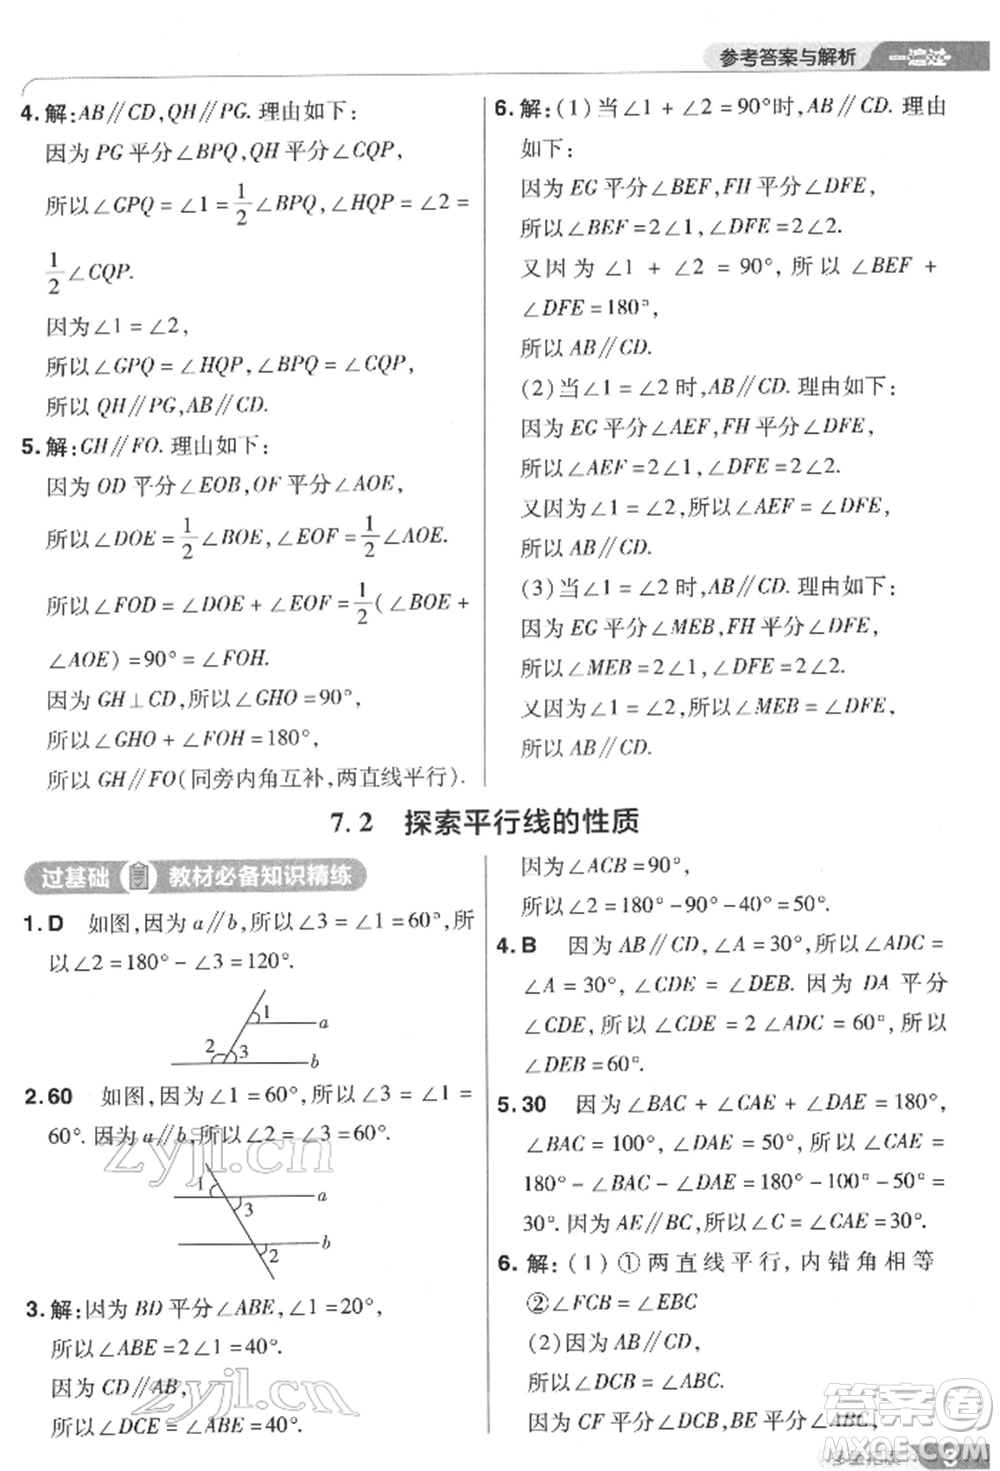 参考答案与解析 一遍过
4.解:AB∥CD,QH∥PG.理由如下:
因为PG平分∠BPQ,QH平分∠CQP,
所以∠GPQ=∠1=1/2∠BPQ,∠HQP=∠2=
1/2∠CQP.
因为∠1=∠2,
所以∠GPQ=∠HQP,∠BPQ=∠CQP,
所以QH∥PG,AB∥CD.
5.解:GH∥FO.理由如下:
因为OD平分∠EOB,OF平分∠AOE,
所以∠DOE=1/2∠BOE,∠EOF=1/2∠AOE.
所以∠FOD=∠DOE+∠EOF=1/2(∠BOE+
∠AOE)=90°=∠FOH.
因为GH⊥CD,所以∠GHO=90°,
所以∠GHO+∠FOH=180°,
所以GH∥FO(同旁内角互补,两直线平行).
6.解:(1)当∠1+∠2=90°时,AB∥CD.理由
如下:
因为EG平分∠BEF,FH平分∠DFE,
所以∠BEF=2∠1,∠DFE=2∠2.
又因为∠1+∠2=90°,所以∠BEF+
∠DFE=180°,
所以AB∥CD.
(2)当∠1=∠2时,AB∥CD.理由如下:
因为EG平分∠AEF,FH平分∠DFE,
所以∠AEF=2∠1,∠DFE=2∠2.
又因为∠1=∠2,所以∠AEF=∠DFE,
所以AB∥CD.
(3)当∠1=∠2时,AB∥CD.理由如下:
因为EG平分∠MEB,FH平分∠DFE,
所以∠MEB=2∠1,∠DFE=2∠2.
又因为∠1=∠2,所以∠MEB=∠DFE,
所以AB∥CD.
7.2 探索平行线的性质
过基础 教材必备知识精练
1.D 如图,因为a∥b,所以∠3=∠1=60°,所
以∠2=180°-∠3=120°.
1
a
2
3
b
2.60 如图,因为∠1=60°,所以∠3=∠1=
60°.因为a∥b,所以∠2=∠3=60°.
1
a
3
b
2
3.解:因为BD平分∠ABE,∠1=20°,
所以∠ABE=2∠1=40°.
因为CD∥AB,
所以∠DCE=∠ABE=40°.
因为∠ACB=90°,
所以∠2=180°-90°-40°=50°.
4.B 因为AB∥CD,∠A=30°,所以∠ADC=
∠A=30°,∠CDE=∠DEB.因为DA平分
∠CDE,所以∠CDE=2∠ADC=60°,所以
∠DEB=60°.
5.30 因为∠BAC+∠CAE+∠DAE=180°,
∠BAC=100°,∠DAE=50°,所以∠CAE=
180°-∠BAC-∠DAE=180°-100°-50°=
30°.因为AE∥BC,所以∠C=∠CAE=30°.
6.解:(1)①两直线平行,内错角相等
②∠FCB=∠EBC
(2)因为AB∥CD,
所以∠DCB=∠ABC.
因为CF平分∠DCB,BE平分∠ABC,
zyjl.cn
zyjl.cn
答案圈
MXQE.COM